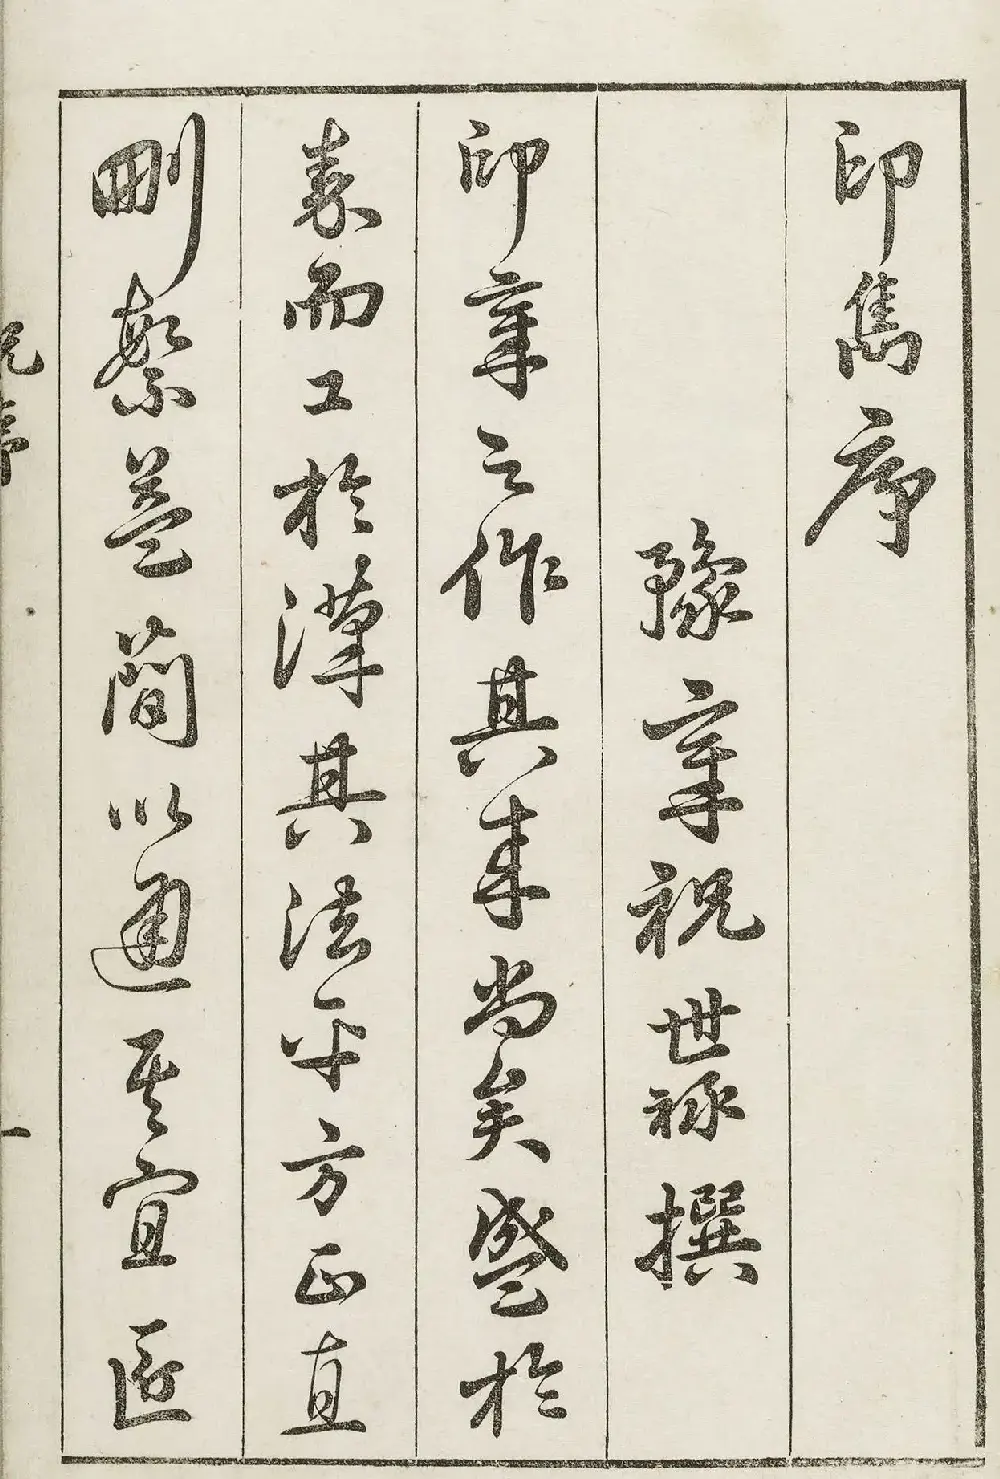 印雋序
豫章祝世祿撰
印章之作其來尚矣盛於
秦而工於漢其法平方正直
刪繁益簡以通其宜匠
祝序
一